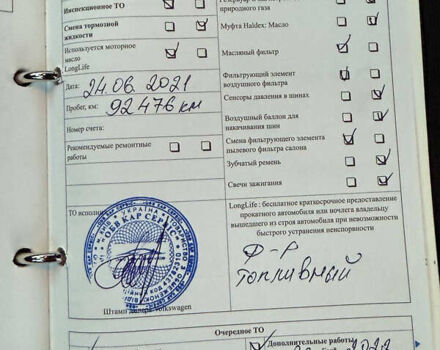 Инспекционное ТО
природного газа
Смена тормозной
жидкости
Муфта Haldex: Масло
Используется моторное
масло
LongLife
Масляный фильтр
Дата: 24.06.2021
Фильтрующий элемент
воздушного фильтра
Пробег, км: 92476 км
Сенсоры давления в шинах
Номер счета:
Воздушный баллон для
накачивания шин
Рекомендуемые ремонтные
работы
Смена фильтрующего элемента
пылевого фильтра салона
Зубчатый ремень
Свечи зажигания
ТО исполнил
LongLife: бесплатное краткосрочное предоставление
прокатного автомобиля или ночлега владельцу
вышедшего из строя автомобиля при невозможности
быстрого устранения неисправности
УКРАЇНА
КАР СЕРВІС
Ф-Р
ТОПЛИВНЫЙ
Штамп дилера Volkswagen
Очередное ТО
Дополнительные работы